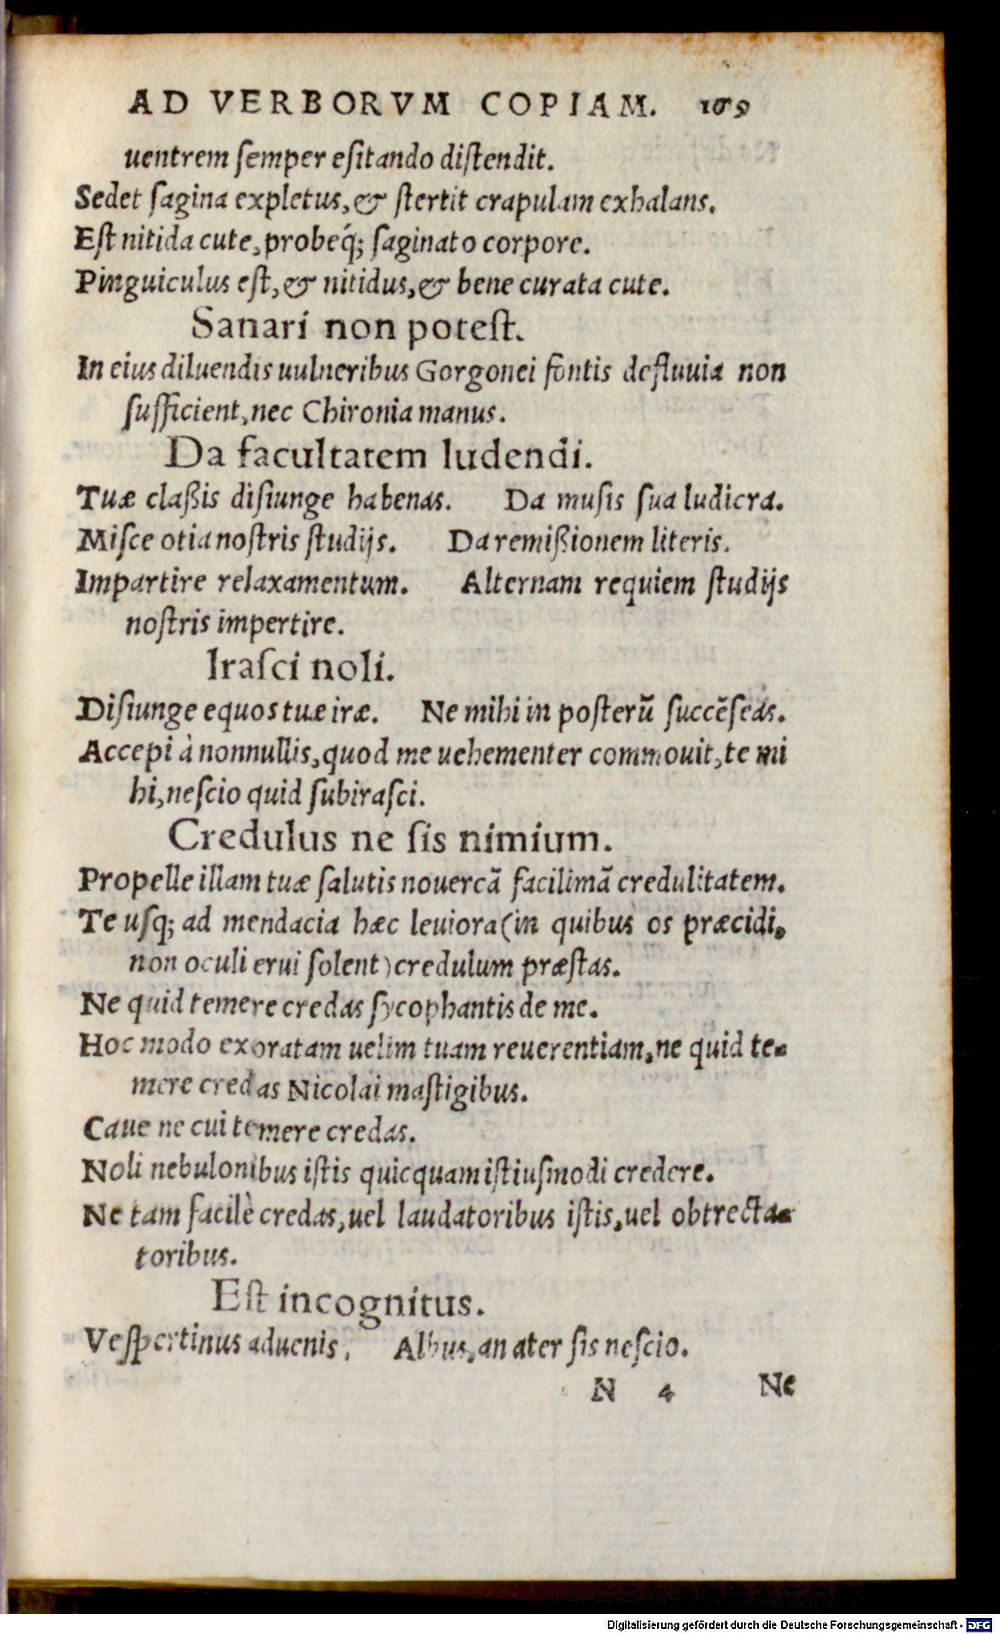 AD VERBORVM COPIAM. 169
uentrem ſemper eſitando diſtendit.
Sedet ſagina expletus, & ſtertit crapulam exhalans.
Eſt nitida cute, probeq́; ſaginato corpore.
Pinguiculus eſt, & nitidus, & bene curata cute.
Sanari non poteſt.
In eius diluendis uulneribus Gorgonei fōntis defluuia non
ſufficient, nec Chironia manus.
Da facultatem ludendi.
Tuæ claßis diſiunge habenas. Da muſis ſua ludicra.
Miſce otia noſtris ſtudijs. Da remißionem literis.
Impartire relaxamentum. Alternam requiem ſtudijs
noſtris impertire.
Iraſci noli.
Diſiunge equos tuæ iræ. Ne mihi in poſterū ſuccēſeas.
Accepi à nonnullis, quod me uehementer commouit, te mi
hi, neſcio quid ſubiraſci.
Credulus ne ſis nimium.
Propelle illam tuæ ſalutis nouercā facilimā credulitatem.
Te uſq; ad mendacia hæc leuiora (in quibus os præcidi,
non oculi erui ſolent) credulum præſtas.
Ne quid temere credas ſycophantis de me.
Hoc modo exoratam uelim tuam reuerentiam, ne quid te-
mere credas Nicolai maſtigibus.
Caue ne cui temere credas.
Noli nebulonibus iſtis quicquam iſtiuſmodi credere.
Ne tam facilè credas, uel laudatoribus iſtis, uel obtrecta-
toribus.
Eſt incognitus.
Veſpertinus aduenis. Albus, an ater ſis neſcio.
N 4 Ne
Digitalisierung gefördert durch die Deutsche Forschungsgemeinschaft - DFG